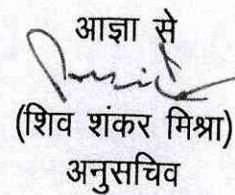 आज्ञा से
(शिव शंकर मिश्रा)
अनुसचिव